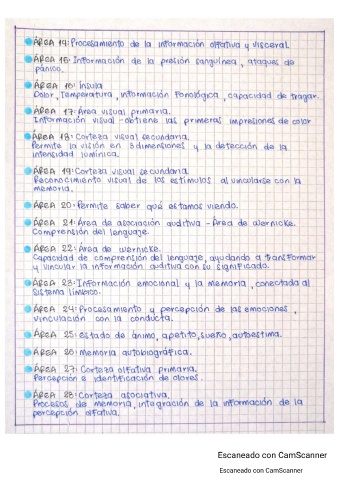 ÁREA 14: Procesamiento de la información olfativa y visceral
ÁREA 15: Información de la presión sanguínea, ataques de
pánico.
ÁREA 16: Ínsula
Dolor, Temperatura, información Fonológica, capacidad de tragar.
ÁREA 17: Área visual primaria.
Información visual - obtiene las primeras impresiones de color
ÁREA 18: Corteza visual secundaria.
Permite la visión en 3 dimensiones y la detección de la
intensidad lumínica.
ÁREA 19: Corteza visual secundaria
Reconocimiento visual de los estímulos al vincularse con la
memoria.
ÁREA 20: Permite saber qué estamos viendo.
ÁREA 21: Área de asociación auditiva - Área de Wernicke.
Comprensión del lenguaje.
ÁREA 22: Área de Wernicke.
Capacidad de comprensión del lenguaje, ayudando a transformar
y vincular la información auditiva con su significado.
ÁREA 23: Información emocional y la memoria, conectada al
sistema límbico.
ÁREA 24: Procesamiento y percepción de las emociones,
vinculación con la conducta.
ÁREA 25: Estado de ánimo, apetito, sueño, autoestima.
ÁREA 26: Memoria autobiográfica.
ÁREA 27: Corteza olfativa primaria.
Percepción e identificación de olores.
ÁREA 28: Corteza asociativa.
Procesos de memoria, integración de la información de la
percepción olfativa.
Escaneado con CamScanner
Escaneado con CamScanner